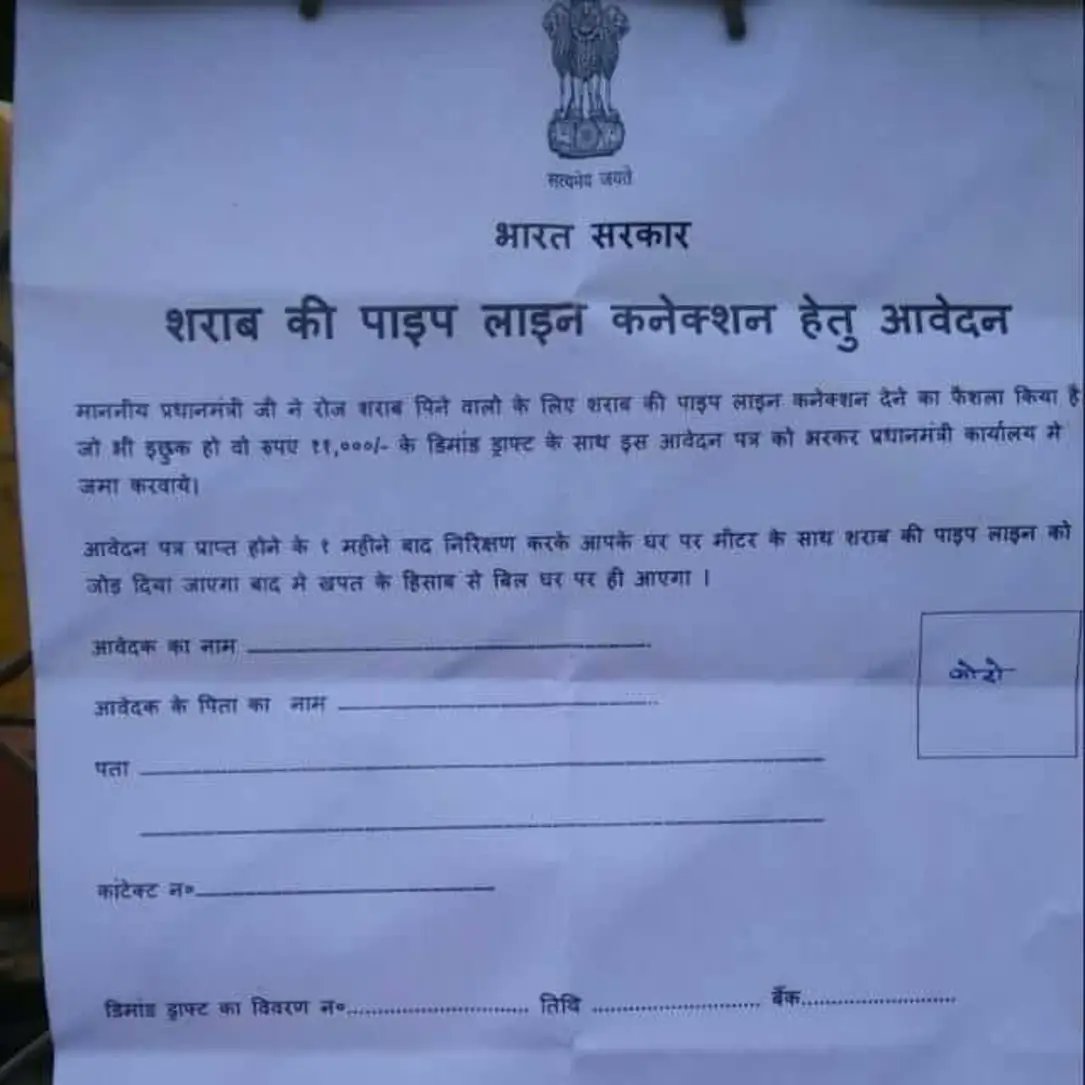 सत्यमेव जयते
भारत सरकार
शराब की पाइप लाइन कनेक्शन हेतु आवेदन
माननीय प्रधानमंत्री जी ने रोज शराब पिने वालो के लिए शराब की पाइप लाइन कनेक्शन देने का फैशला किया है
जो भी इछुक हो वो रुपए ११,०००/- के डिमांड ड्राफ्ट के साथ इस आवेदन पत्र को भरकर प्रधानमंत्री कार्यालय मे
जमा करवाये।
आवेदन पत्र प्राप्त होने के १ महीने बाद निरिक्षण करके आपके घर पर मीटर के साथ शराब की पाइप लाइन को
जोड दिया जाएगा बाद मे खपत के हिसाब से बिल घर पर ही आएगा ।
आवेदक का नाम
फोटो
आवेदक के पिता का नाम
पता
कांटेक्ट न०
डिमांड ड्राफ्ट का विवरण न०.............................. तिथि ............................ बैंक..........................